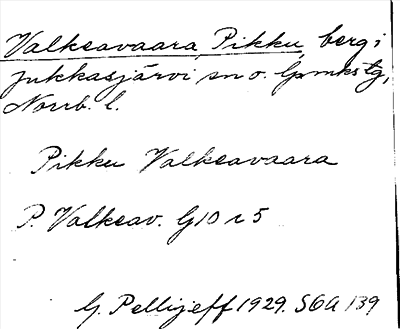 Valkeavaara, Pikku, berg i
Jukkasjärvi sn o. lpmkstg,
Norrb. l.
Pikku Valkeavaara
P. Valkeav. G10 r 5
G. Pellijeff 1929. SGA 139